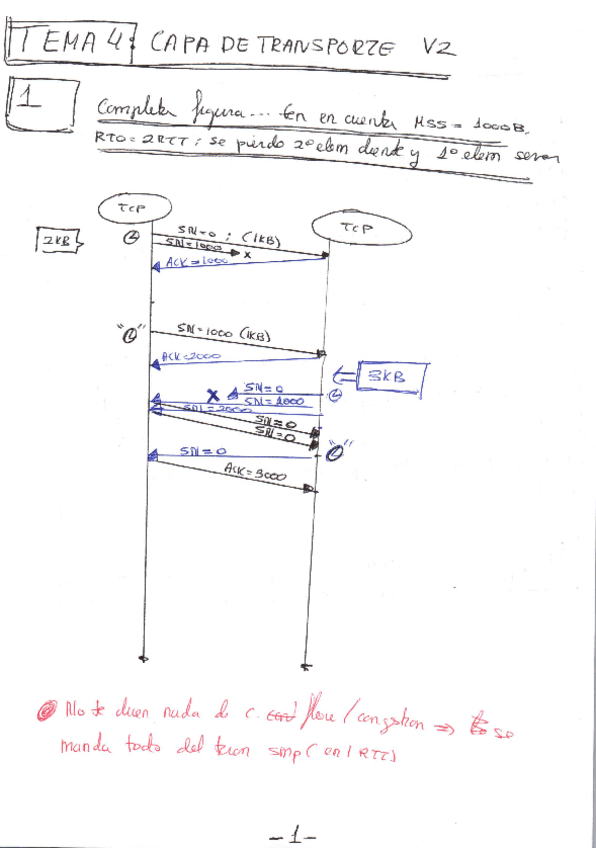 TEMA 4: CAPA DE TRANSPORTE V2
1
Completa figura... ten en cuenta MSS = 1000B,
RTO = 2RTT; se pierde 2º elem cliente y 1º elem server
TCP
TCP
2KB
SN=0 ; (1KB)
SN=1000
x
ACK=1000
SN=1000 (1KB)
ACK=2000
3KB
SN=0
X
SN=1000
SN=2000
SN=0
SN=0
SN=0
ACK=3000
No te dicen nada de c. flujo / congestion => se
manda todo del tiron smp (en 1 RTT)
-1-